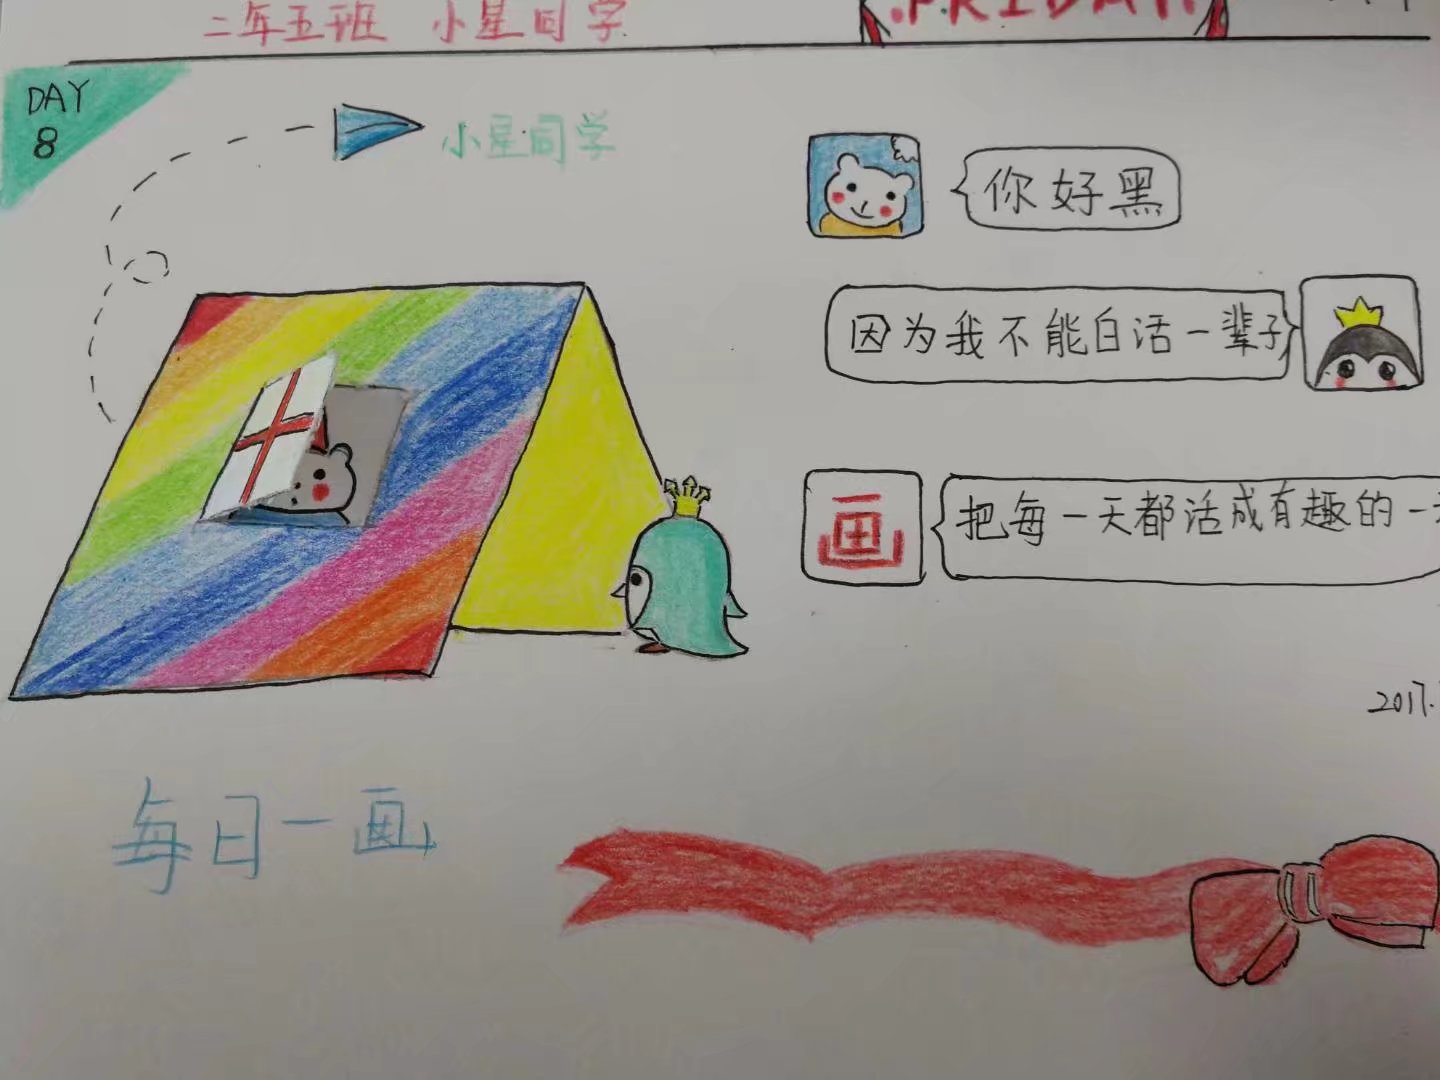 二年五班 小星同学
FRIDAY
DAY
8
小星同学
你好黑
因为我不能白活一辈子
画
把每一天都活成有趣的一天
2017.
每日一画